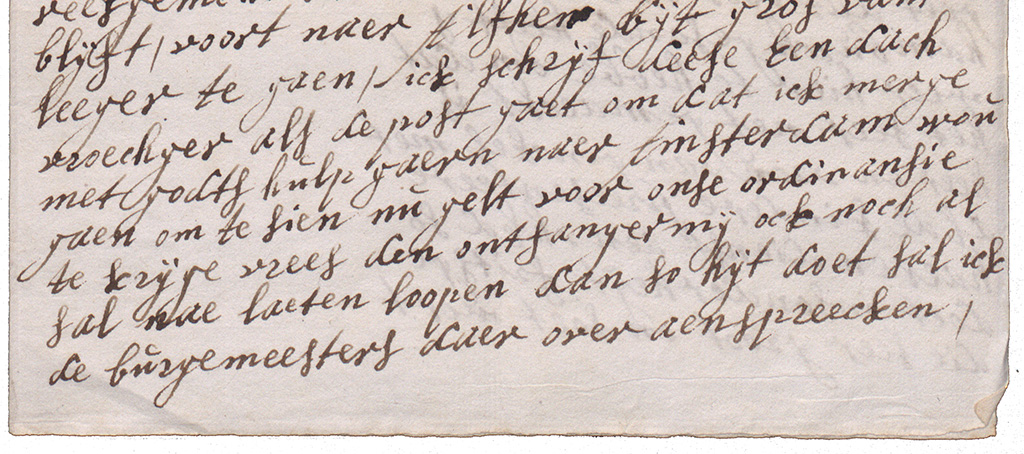 blijft / voort naer tilthem bijt grof van
leeger te gaen / ick schrijf deese Een dach
vroechger als de post gaet om dat ick merge
met godts hulp gaern naer Amsterdam wou
gaen om te sien nu gelt voor onse ordinansie
te krijge vrees den ontfanger mij ock noch al
sal nae laeten loopen dan so hijt doet sal ick
de burgemeesters daer over aenspreecken /